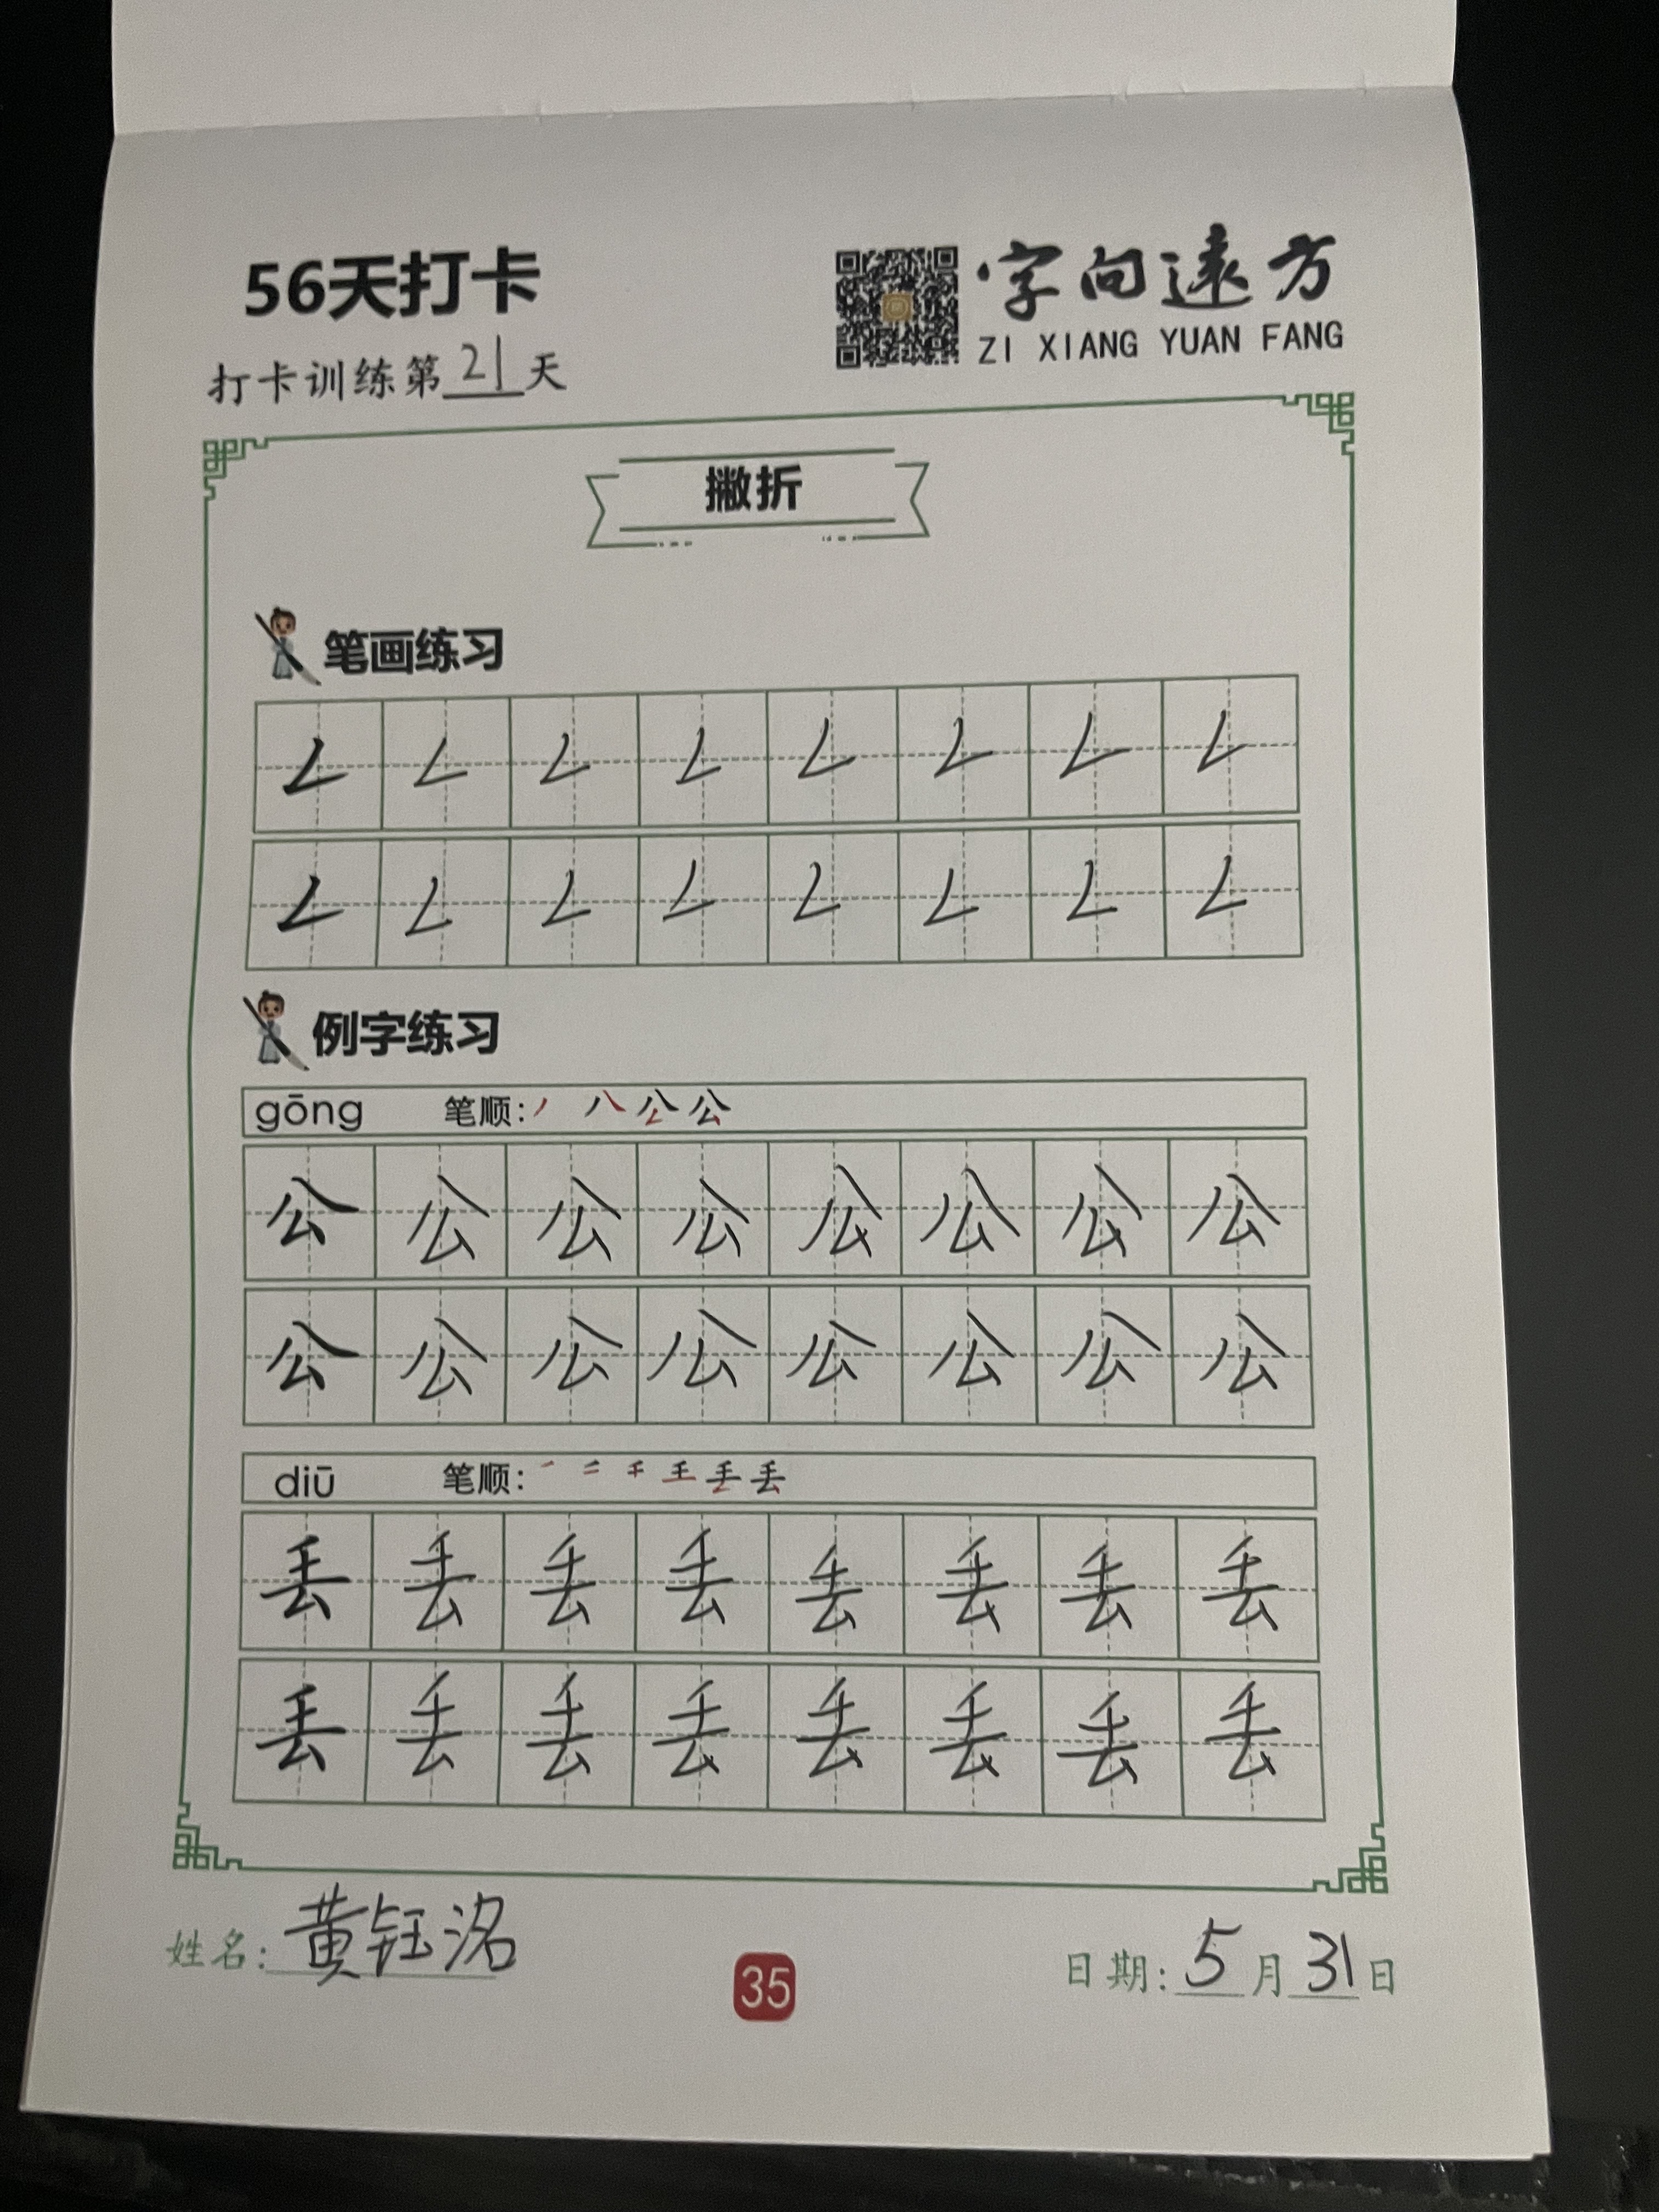 56天打卡
字向遠方
ZI XIANG YUAN FANG
打卡训练第21天
撇折
笔画练习
𠃋 𠃋 𠃋 𠃋 𠃋 𠃋 𠃋 𠃋
𠃋 𠃋 𠃋 𠃋 𠃋 𠃋 𠃋 𠃋
例字练习
gōng 笔顺: 丿 八 公 公
公 公 公 公 公 公 公 公
公 公 公 公 公 公 公 公
diū 笔顺:
丢 丢 丢 丢 丢 丢 丢 丢
丢 丢 丢 丢 丢 丢 丢 丢
姓名: 黄钰洺
35
日期: 5月31日